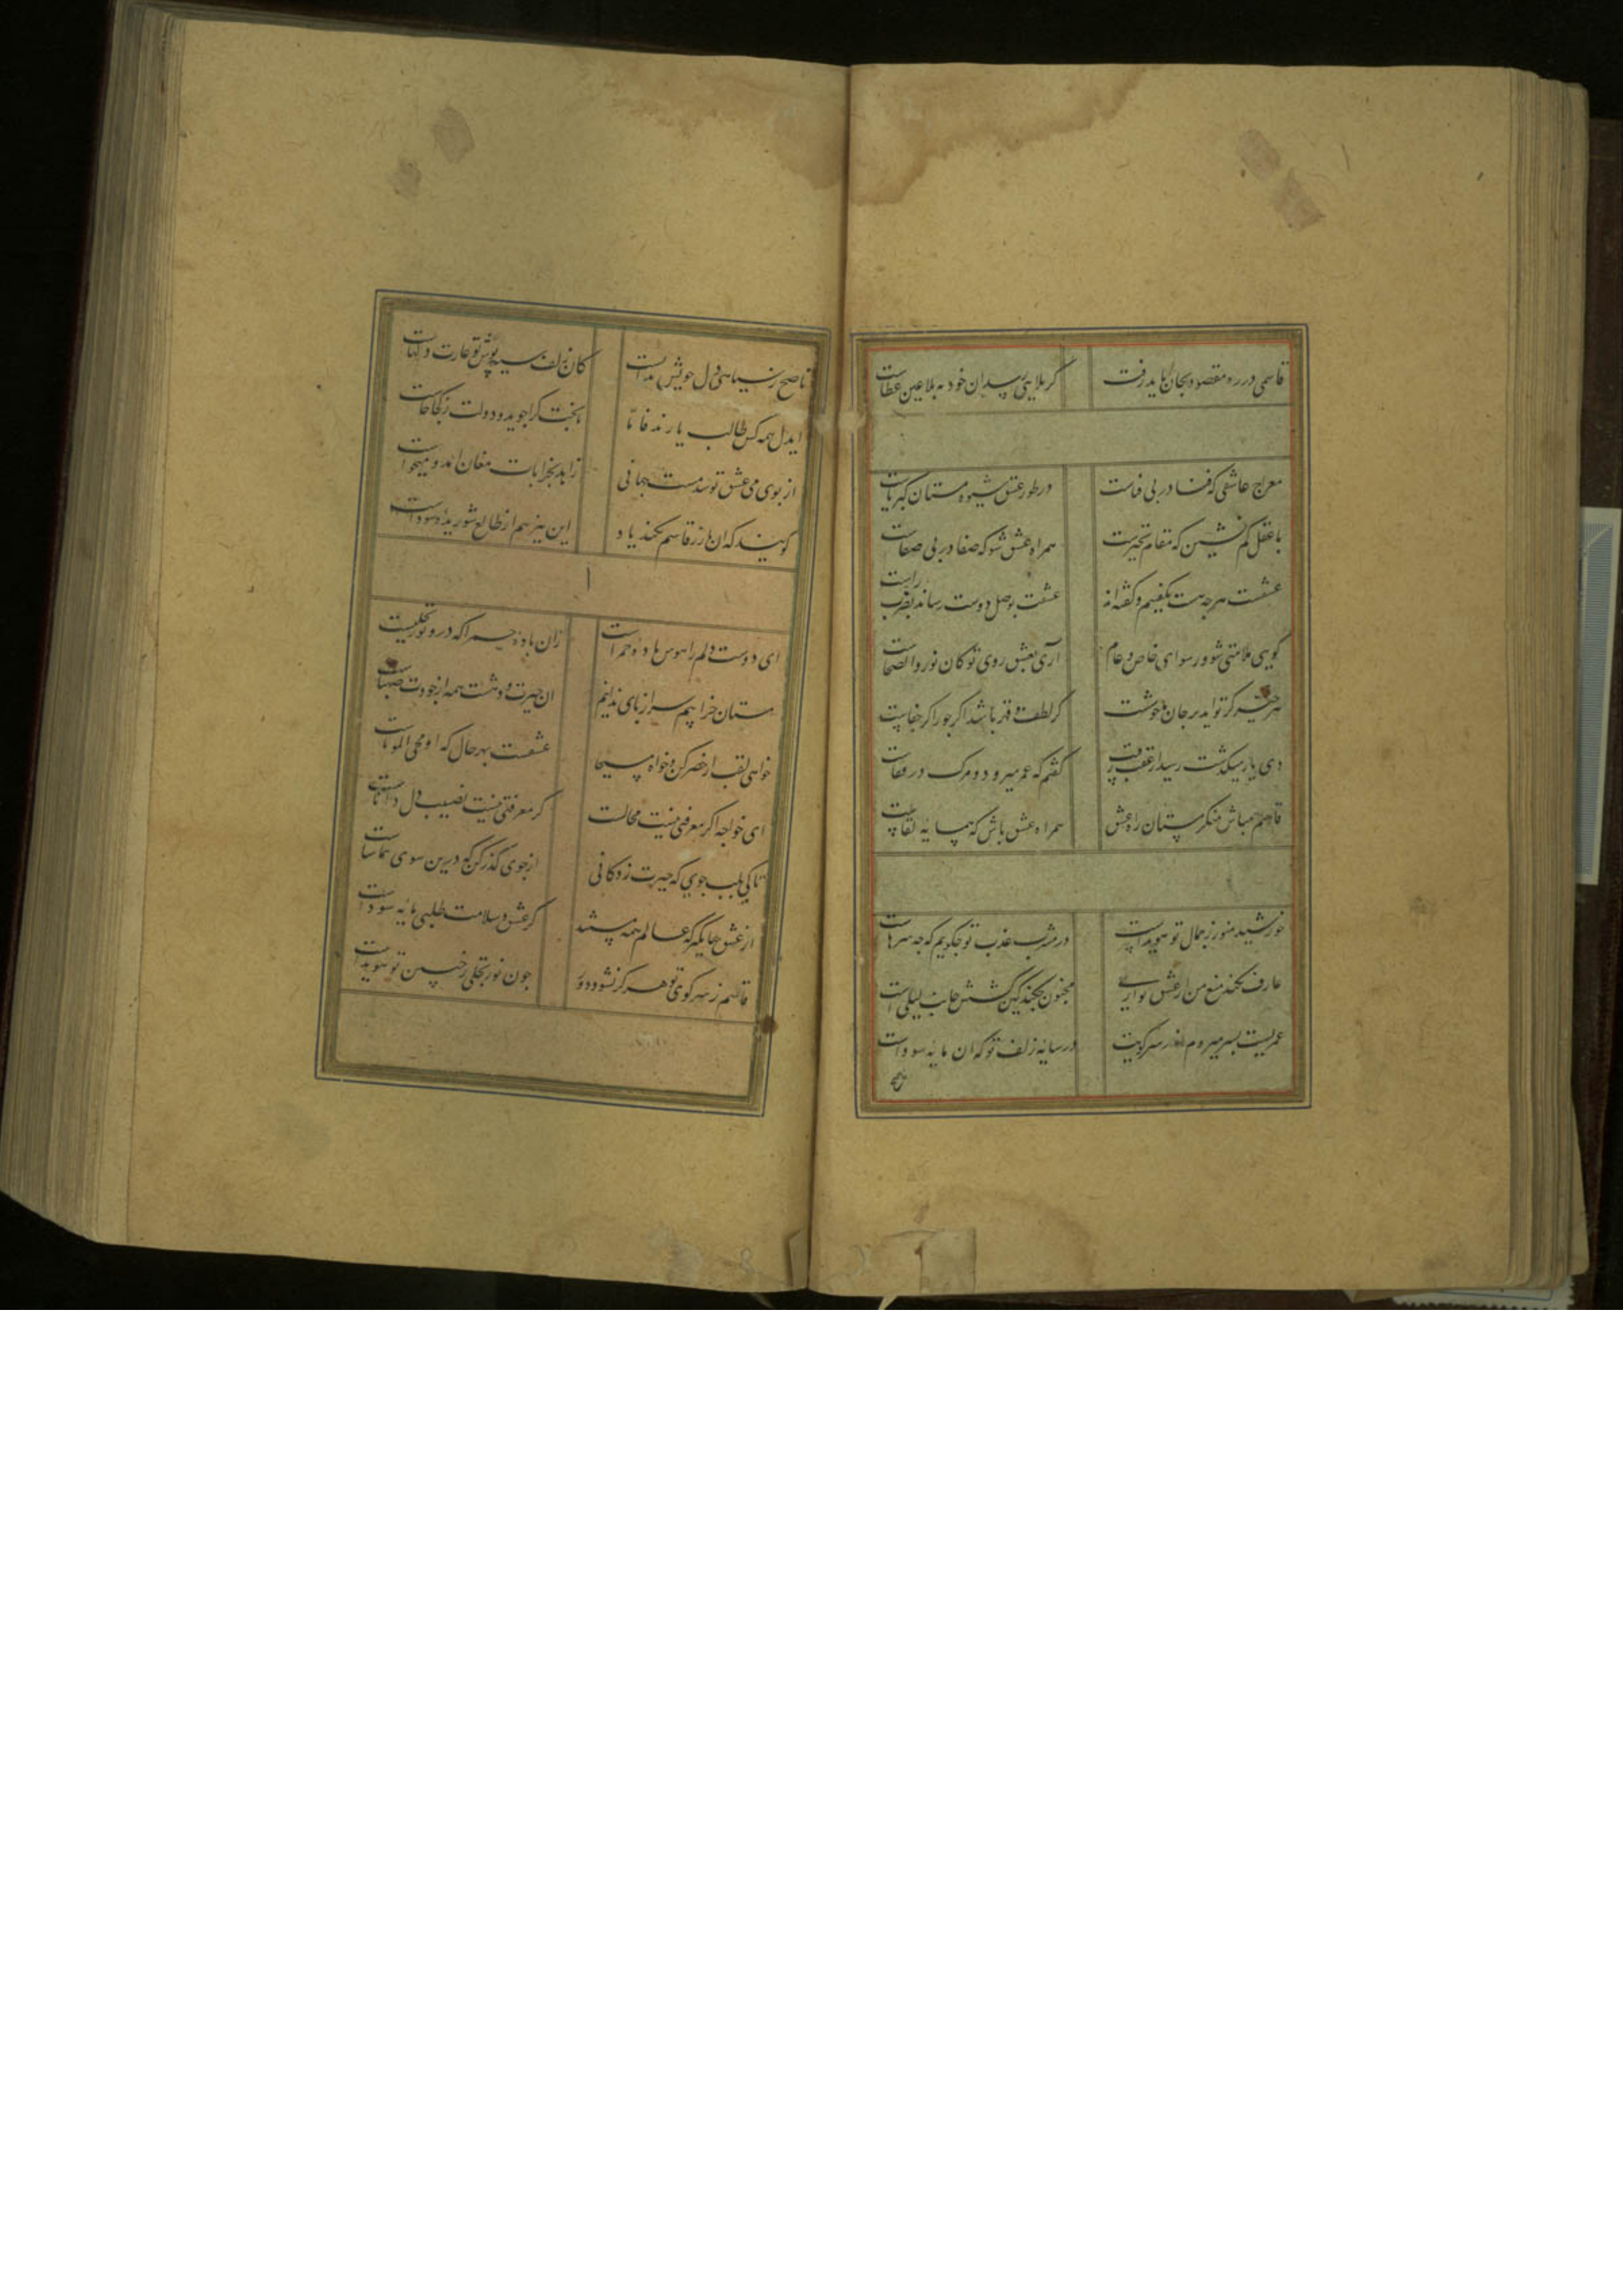 قاسمی در ره مقصود بجان باید رفت
گر بلایی رسد آن خود نه بلا عین عطاست
معراج عاشقی که فنا در بی فناست
در طور عشق شیوه مستان کبریاست
با عقل کم نشین که مقام تحیرست
همراه عشق شو که صفا در بی صفاست
عشقست هرچه هست بگفتیم و گفته‌اند
عشقت بوصل دوست رساند بضرب راست
گویی ملامتی شو و رسوای خاص و عام
آری بعشق روی تو کان نور والضحاست
هرچیز کز تو آید بر جان ما خوشست
گر لطف و قهر باشد اگر جور اگر جفاست
دی یار میگذشت رسید از عقب رقیب
گفتم که عمر میرود و مرگ در قفاست
قاسم مباش منکر مستان راه عشق
همراه عشق باش که همسایه لقاست
خورشید منور ز جمال تو هویداست
در مشرب عذب تو چگویم که چه سرهاست
عارف نکند منع من از عشق تو آری
مجنون چکند کین کشش از جانب لیلی است
عمریست بسر میروم اندر سر کویت
در سایه زلف تو که آن مایه سوداست
ناصح
ناصح ز سیاهی دل خویش
کان زلف سیه پوش تو غارت
ایدل همه کس طالب یارند
تا بخت کرا جوید و دولت ز کجا خاست
از بوی می عشق تو شد مست جهانی
زاهد بخرابات مغان آمد و میخواست
گویند که آن یار ز قاسم نکند یاد
این نیز هم از طالع شوریده سوداست
ای دوست دلم را هوس باده حمراست
زان باده حمرا که درو نور تجلیست
مستان خرابیم سر از پای ندانیم
آن حیرت و دهشت همه از جودت صهباست
خواهی لقب از خضر کن و خواه مسیحا
عشقست بهر حال که او محیی الموتاست
ای خواجه اگر معرفتی نیست محالست
گر معرفتی نیست نصیب دل
تا کی بلب جوی که حیرت زدگانی
از جوی گذر کن که درین سوی تماشاست
از عشق
گر عشق و سلامت طلبی مایه سوداست
قاسم ز سر کوی تو هرگز نشود دور
چون نور تجلی ز جبین تو هویداست